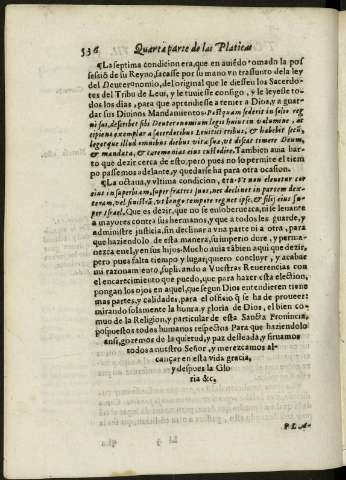 536 Quarta parte de las Platicas
¶La septima condicion era, que en auiédo tomado la pos
sessiõ de su Reyno, sacasse por su mano vn trassunto dela ley
del Deuteronomio, del original que le diessen los Sacerdo-
tes del Tribu de Leui, y le tuuiesse consigo, y le leyesse to-
dos los dias, para que aprendiesse a temer a Dios, y a guar-
dar sus Diuinos Mandamientos: Postquam sederit in solio reg
ni sui, describet sibi Deuteronomium legis huius in volumine, ac
cipiens exemplar a sacerdotibus Leuitici tribus, & habebit secũ,
legetque illud omnibus diebus vitæ suæ, vt discat timere Deum,
& mandata, & ceremonias eius custodire. Tambien auia har-
to que dezir cerca de esto; pero pues no lo permite el tiem
po passemos adelante, y quedarse ha para otra ocasion.
¶La octaua, y vltima condicion, era Vt non eleuetur cor
eius in superbiam, super fratres suos, nec declinet in partem dex-
teram, vel sinistrã, vt longo tempore regnet ipse, & filij eius su-
per Israel. Que es dezir, que no se ensoberuezca, ni se leuante
a mayores contra sus hermanos, y que a todos les guarde, y
administre justicia, sin declinar a vna parte ni a otra, para
que haziendolo de esta manera, su imperio dure, y perma-
nezca en el, y en sus hijos. Mucho auia tãbien aqui que dezir,
pero pues falta tiempo y lugar, quiero concluyr, y acabar
mi razonamiento, suplicando a Vuestras Reuerencias con
el encarecimiento que puedo, que para hazer esta election,
pongan los ojos en aquel, que segun Dios entendieren tiene
mas partes, y calidades, para el officio q̃ se ha de proueer:
mirando solamente la honra, y gloria de Dios, el bien co-
mun de la Religion, y particular de esta Sancta Prouincia,
pospuestos todos humanos respectos Para que haziendolo
ansi, gozemos de la quietud, y paz desseada, y siruamos
todos a nuestro Señor, y merezcamos al-
cançar en esta vida gracia,
y despues la Glo
ria &c.
PLA-